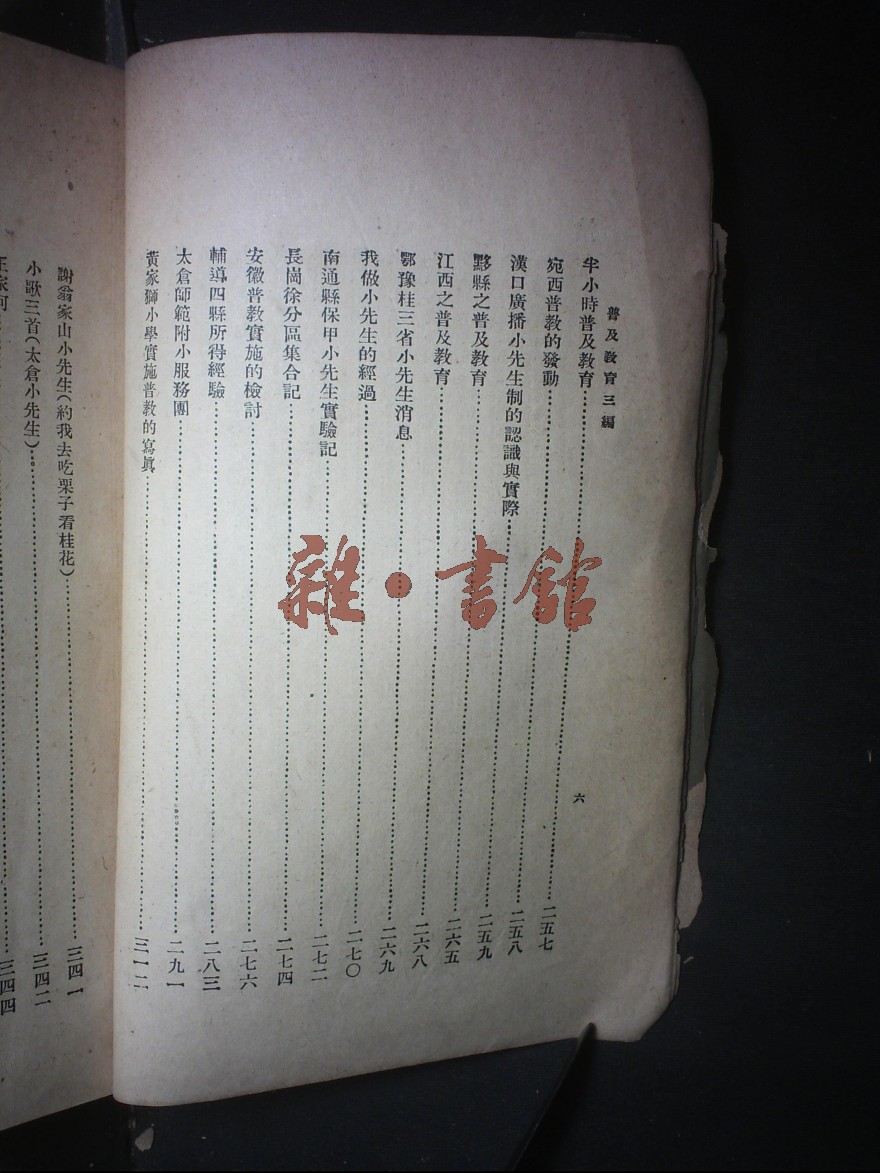 普及教育三編
六
半小時普及教育……二五七
宛西普教的發動……二五八
漢口廣播小先生制的認識與實際……二五九
黟縣之普及教育……二六五
江西之普及教育……二六八
鄂豫桂三省小先生消息……二六九
我做小先生的經過……二七〇
南通縣保甲小先生實驗記……二七二
長崗徐分區集合記……二七四
安徽普教實施的檢討……二七六
輔導四縣所得經驗……二八三
太倉師範附小服務團……二九一
黃家獅小學實施普教的寫眞……三一二
謝翁家山小先生（約我去吃栗子看桂花）……三四一
小歌三首（太倉小先生）……三四二
……三四四
雜·書館